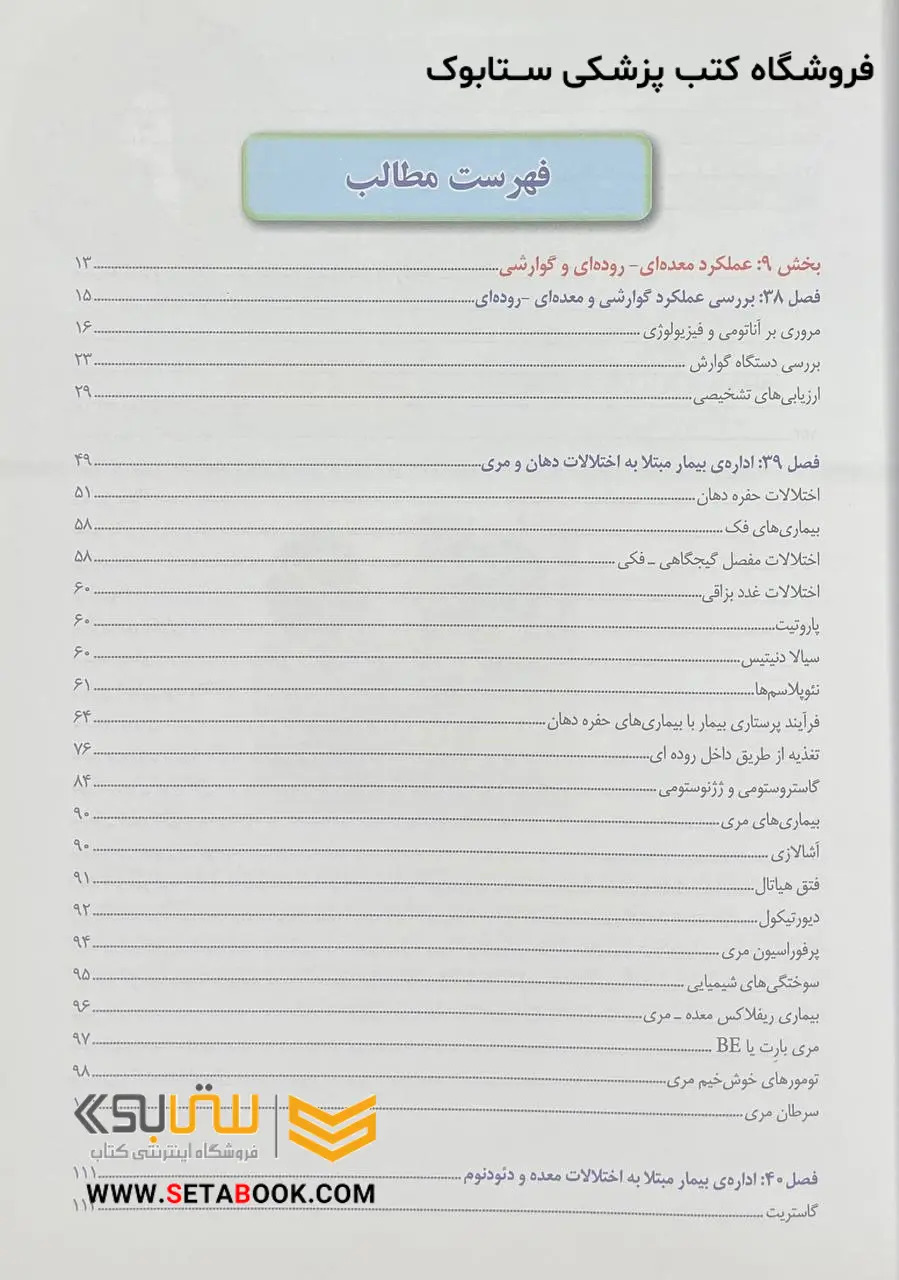 فروشگاه کتب پزشکی ستابوک
فهرست مطالب
بخش ۹: عملکرد معده‌ای- روده‌ای و گوارشی ۱۳
فصل ۳۸: بررسی عملکرد گوارشی و معده‌ای -روده‌ای ۱۵
مروری بر آناتومی و فیزیولوژی ۱۶
بررسی دستگاه گوارش ۲۳
ارزیابی‌های تشخیصی ۲۹
فصل ۳۹: اداره‌ی بیمار مبتلا به اختلالات دهان و مری ۴۹
اختلالات حفره دهان ۵۱
بیماری‌های فک ۵۸
اختلالات مفصل گیجگاهی ـ فکی ۵۸
اختلالات غدد بزاقی ۶۰
پاروتیت ۶۰
سیالا دنیتیس ۶۰
نئوپلاسم‌ها ۶۱
فرآیند پرستاری بیمار با بیماری‌های حفره دهان ۶۴
تغذیه از طریق داخل روده ای ۷۶
گاستروستومی و ژژنوستومی ۸۴
بیماری‌های مری ۹۰
آشالازی ۹۰
فتق هیاتال ۹۱
دیورتیکول ۹۲
پرفوراسیون مری ۹۴
سوختگی‌های شیمیایی ۹۵
بیماری ریفلاکس معده ـ مری ۹۶
مری بارِت یا BE ۹۷
تومورهای خوش‌خیم مری ۹۸
سرطان مری
ستابوک
فروشگاه اینترنتی کتاب
فصل ۴۰: اداره‌ی بیمار مبتلا به اختلالات معده و دئودنوم ۱۱۱
WWW.SETABOOK.COM
گاستریت